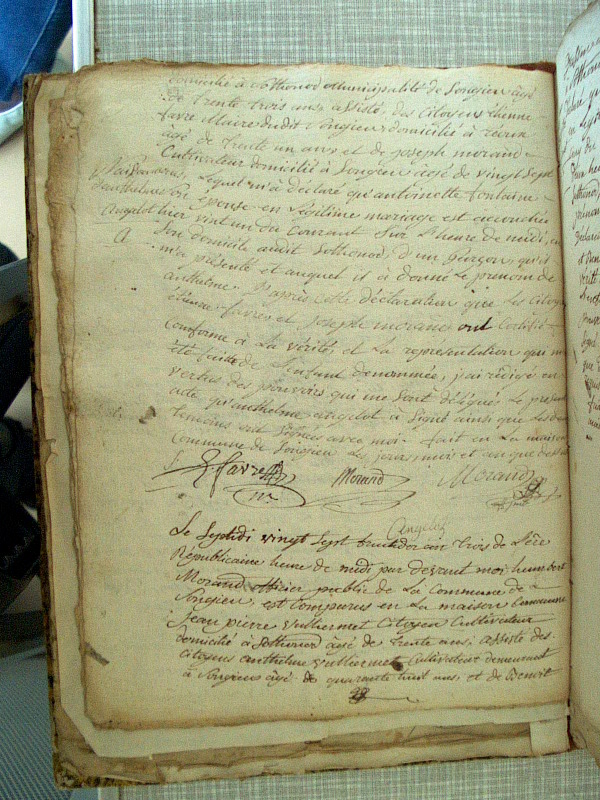 domicilié à Sothonod Municipalité de Songieu âgé
de trente trois ans, assisté, des Citoyens étienne
favre Maire dudit Songieu domicilié à
agé de trente un ans et de joseph morand
Cultivateur domicilié à Songieu agé de vingt sept
ans, Lequel m'a déclaré qu'antoinette fontaine
Son épouse en Légitime mariage est accouchée
hier vint un du Courant Sur L'heure de midi, en
Son domicile audit Sothonod, d'un garçon, qu'il
m'a présenté et auquel il à donné Le prénom de
anthelme. D'après cette déclaration que Les Citoyens
étienne favre et joseph morand ont Certifié
Conforme à La vérité, et La représentation qui m'a
été faitte de L'enfant dénommée, j'ai rédigé en
vertus des pouvoirs qui me Sont délégué, Le présent
acte qu'anthelme angelot à Signé ainsi que Les deux
témoins avec moi. fait en La maison
Commune de Songieu Les jours mois et an que dessus
Naissance
d'anthelme
angelot
E. favre Mre
Morand
Morand
angelot
Le Septidi vingt Sept an trois de L'ère
Républicaine heure de midi par devant moi humbert
Morand officier public de La Commune de
Songieu, est Comparus en La maison Commune
Jean pierre vulliermet Citoyen Cultivateur
domicilié à Sothonod âgé de trente ans, assisté des
Citoyens anthelme vulliermet Cultivateur demeurant
à Songieu âgé de quarante huit ans, et de Benoit